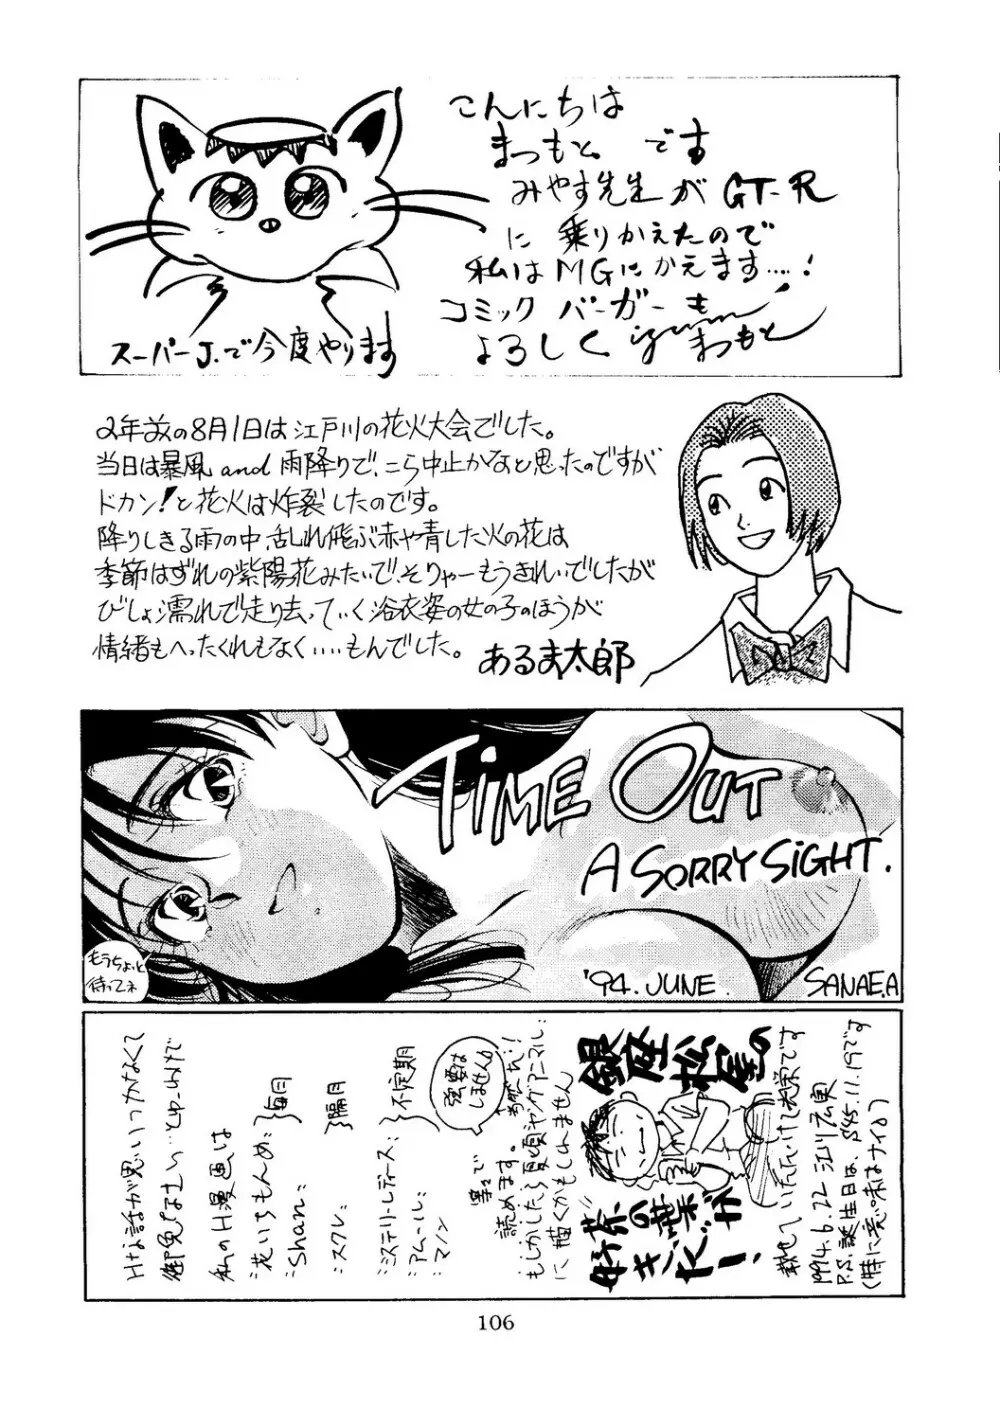 こんにちは
まつもと。です
みやす先生がGT-R
に乗りかえたので
私はMGにかえます…!
コミックバーガーも
よろしく
まつもと
スーパーJ.で今度やります
2年前の8月1日は江戸川の花火大会でした。
当日は暴風and雨降りで、こら中止かなと思ったのですが
ドカン!と花火は炸裂したのです。
降りしきる雨の中、乱れ飛ぶ赤や青した火の花は
季節はずれの紫陽花みたいで、そりゃーもうきれいでしたが
びしょ濡れで走り去っていく浴衣姿の女の子のほうが
情緒もへったくれもなく……もんでした。
あるま太郎
TIME OUT
A SORRY SIGHT.
もうちょっと
待ってネ
'94.JUNE.
SANAE.A
Hな話が思いつかなくて
御免なさい…とゆーわけで
私のH漫画は
花いちもんめ:
Shan:
}毎月
スクレ:
}隔月
ミステリーレディース:
アムール:
マノン
}不定期
等々で
読めます。
強要は
しません。
もしかしたら夏頃ヤングアニマル:
に描くかもしれません
銀座松屋の
好茶の葉が
載せていただいけ光栄です
1994.6.22 江川広実
P.S.誕生日は、S45.11.19です
(特に意味はナイよ)
106